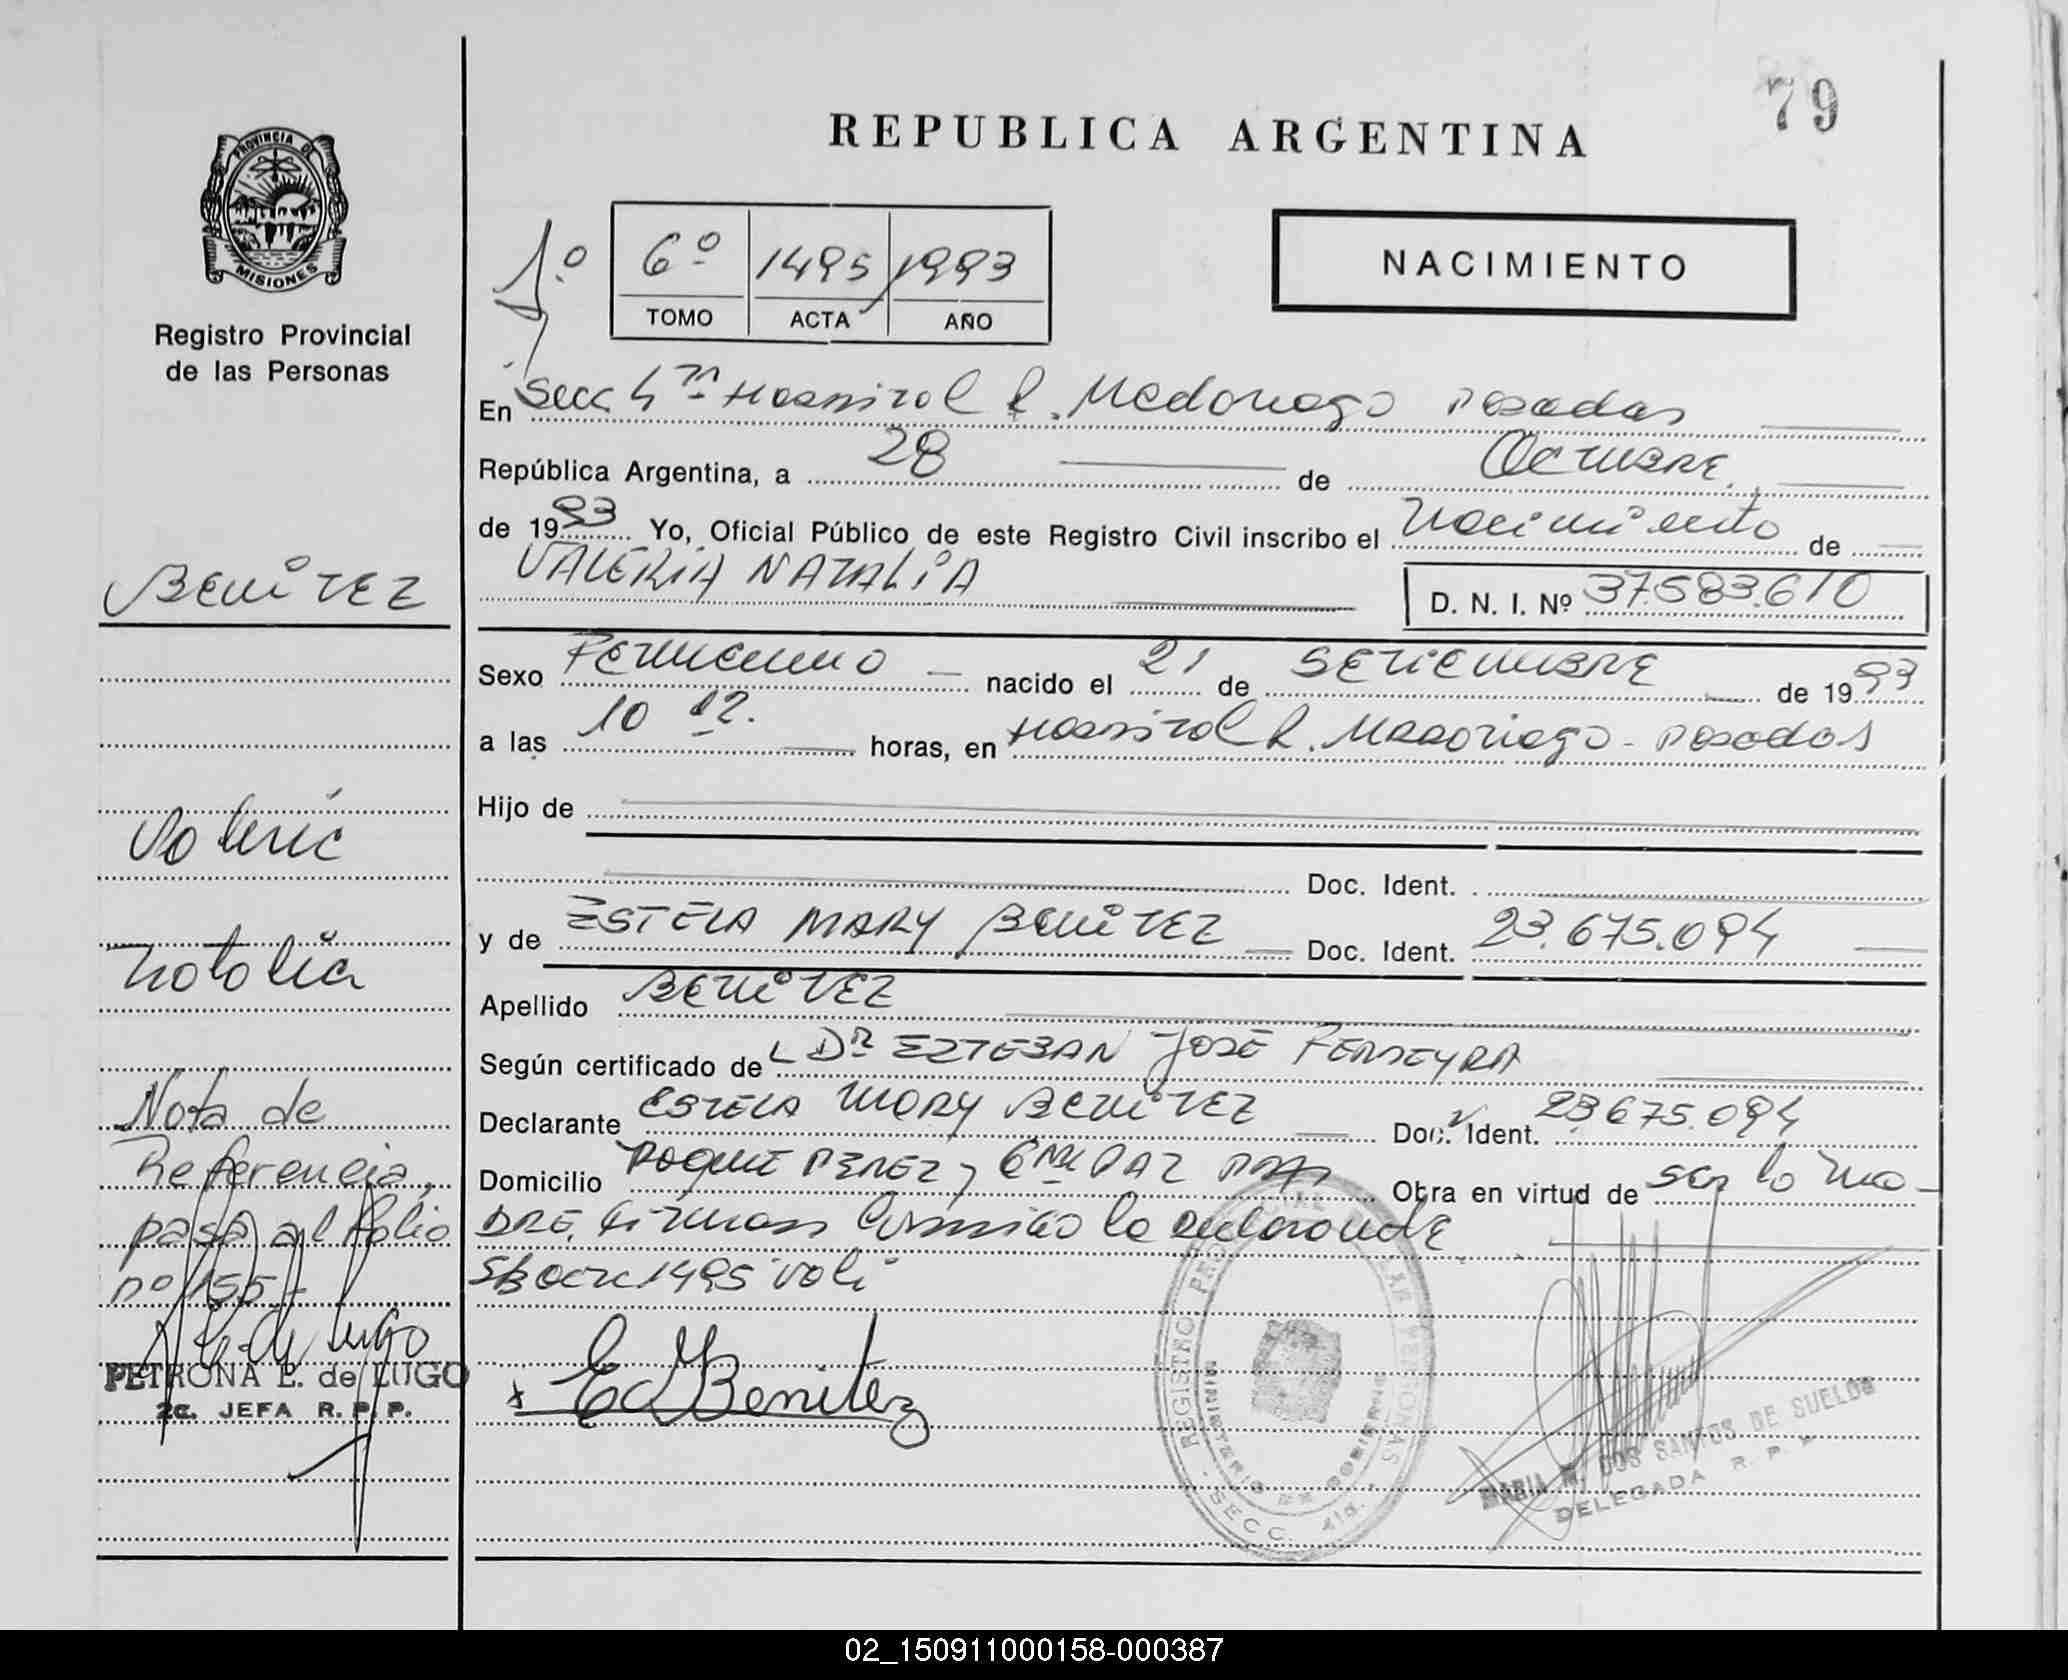 79
REPUBLICA ARGENTINA
PROVINCIA DE
MISIONES
Registro Provincial
de las Personas
1º
6º 1495 1993
TOMO ACTA AÑO
NACIMIENTO
En Secc 4ta Hospital R. Madariaga Posadas
República Argentina, a 28 de Octubre
de 1993 Yo, Oficial Público de este Registro Civil inscribo el Nacimiento de
VALERIA NATALIA
D. N. I. Nº 37.583.610
BENITEZ
Sexo Femenino nacido el 21 de SETIEMBRE de 1993
a las 10 12. horas, en Hospital R. Madariaga - Posadas
Hijo de
Valeria
Doc. Ident.
y de ESTELA MARY BENITEZ Doc. Ident. 23.675.094
Natalia
Apellido BENITEZ
Según certificado de L DR ESTEBAN JOSÉ FERREYRA
Declarante ESTELA MARY BENITEZ Doc. Ident. 23675.094
Domicilio ROQUE PEREZ y PAZ Obra en virtud de ser la ma-
DRE, firman conmigo la declarante
1495 vale
Nota de
Referencia,
pasa al folio
nº 155-
PETRONA E. de LUGO
2a. JEFA R. P. P.
E M Benitez
REGISTRO PROVINCIAL DE LAS PERSONAS
MINISTERIO DE GOBIERNO
SECC. 4ta.
MARIA M. DOS SANTOS DE SUELDO
DELEGADA R. P. P.
02_150911000158-000387